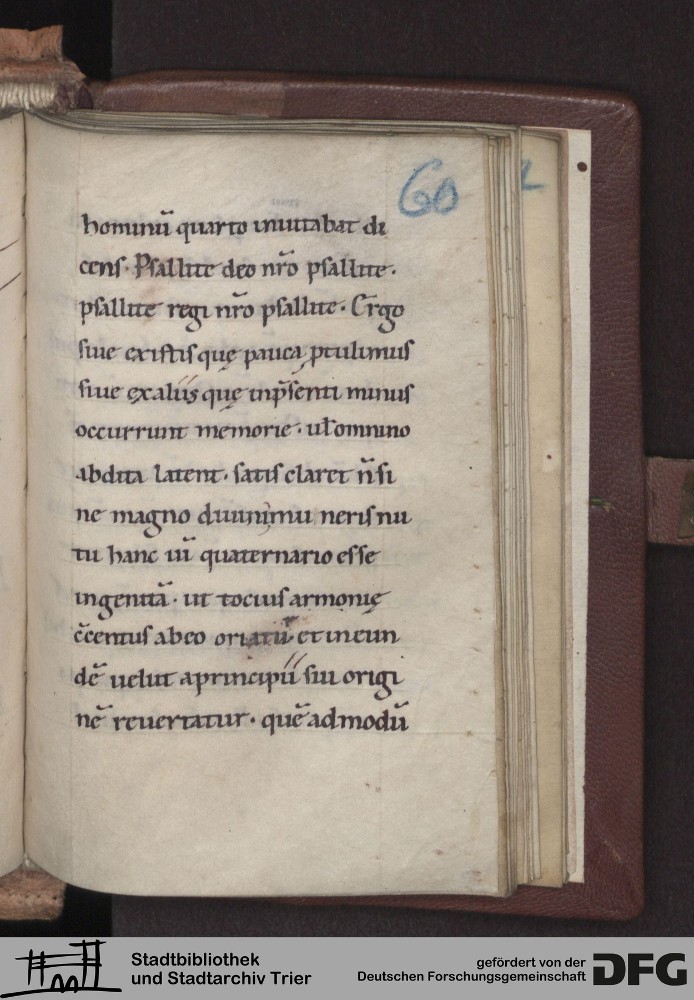 60
hominū quarto inuitabat di
cens · Psallite deo nr̄o psallite ·
psallite regi nr̄o psallite · Ergo
siue ex istis quę pauca ꝑtulimus
siue ex aliis quę inp̄senti minus
occurrunt memorie · uƚ omnino
abdita latent · satis claret n̄ si
ne magno diuini muneris nu
tu hanc uī quaternario esse
ingenitā · ut tocius armonię
c̄centus ab eo oriatū · et in eun
dē uelut a principii sui origi
nē reuertatur · quē ad modū
Stadtbibliothek
und Stadtarchiv Trier
gefördert von der
Deutschen Forschungsgemeinschaft
DFG